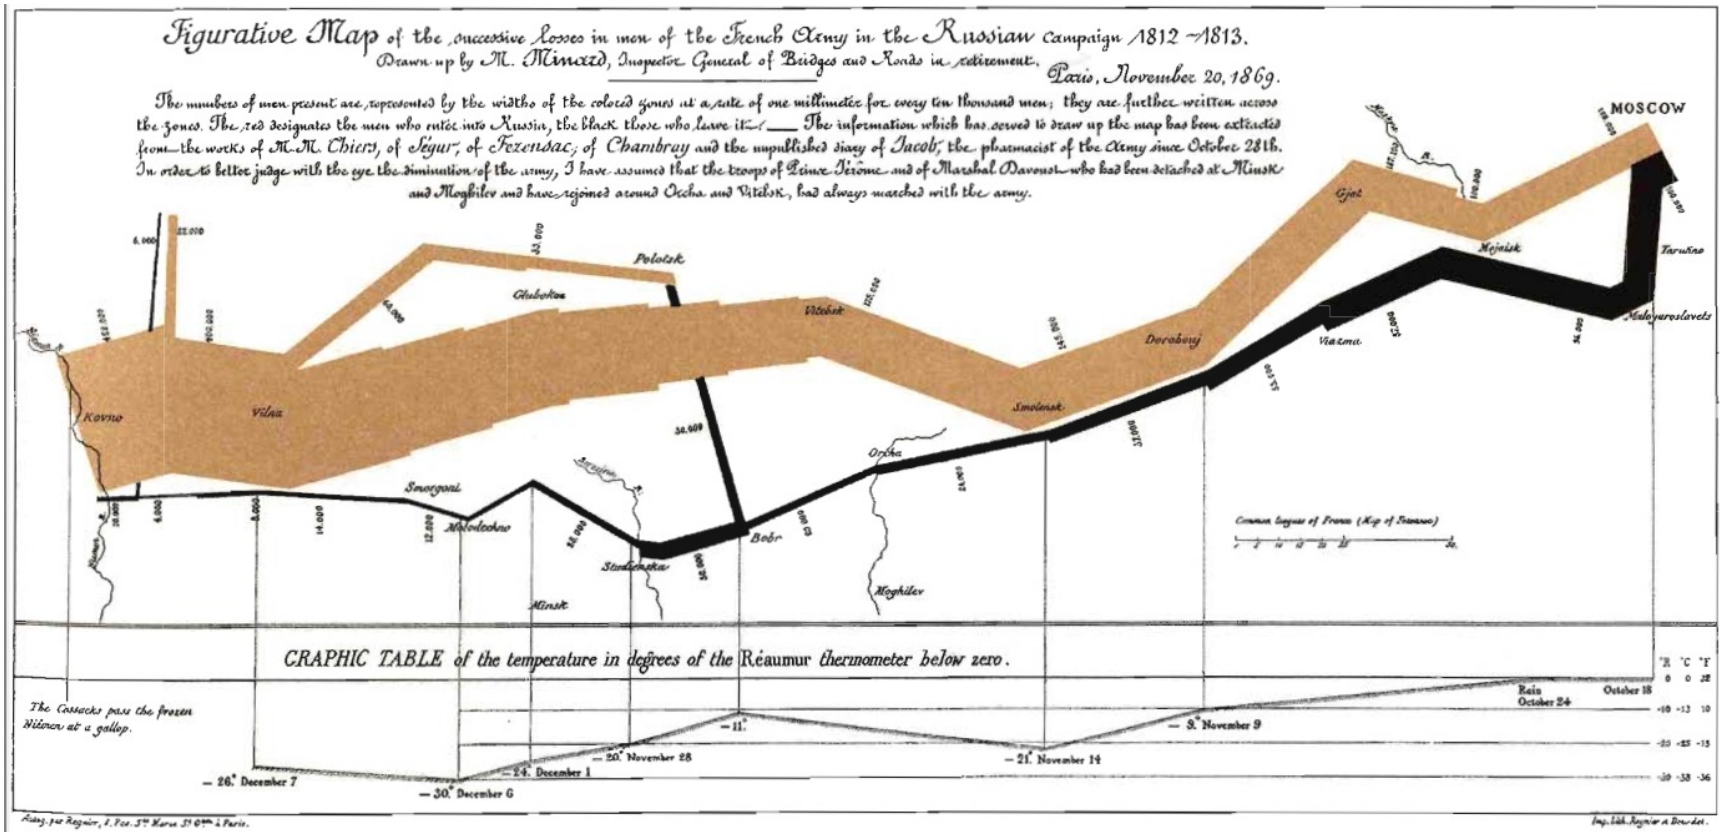 Figurative Map of the successive losses in men of the French Army in the Russian campaign 1812–1813.
Drawn up by M. Minard, Inspector General of Bridges and Roads in retirement.
Paris, November 20, 1869.
The numbers of men present are represented by the widths of the colored zones at a rate of one millimeter for every ten thousand men; they are further written across
the zones. The red designates the men who enter into Russia, the black those who leave it. — The information which has served to draw up the map has been extracted
from the works of M. M. Thiers, of Ségur, of Fezensac, of Chambray and the unpublished diary of Jacob, the pharmacist of the Army since October 28th.
In order to better judge with the eye the diminution of the army, I have assumed that the troops of Prince Jérôme and of Marshal Davoust who had been detached at Minsk
and Moghilev and have rejoined around Orcha and Vitebsk, had always marched with the army.
MOSCOW
100.000
100.000
Gjat
Mojaisk
Tarutino
Malo-jaroslavets
6.000
22.000
33.000
Polotsk
60.000
Glubokoe
400.000
Vitebsk
175.000
145.000
Dorobouj
Viazma
37.000
55.000
Kovno
Vilna
Smolensk
37.000
30.000
Orcha
24.000
Smorgoni
Molodechno
4.000
8.000
14.000
12.000
28.000
Studienska
50.000
Bobr
20.000
Minsk
Moghilev
Niemen R.
Common leagues of France (Map of Fezensac)
CRAPHIC TABLE of the temperature in degrees of the Réaumur thermometer below zero.
°R °C °F
0 0 32
The Cossacks pass the frozen
Niemen at a gallop.
Rain
October 24
October 18
-10 -13 10
— 9.° November 9
— 11.°
— 20.° November 28
— 21.° November 14
— 24. December 1
— 26.° December 7
— 30.° December 6
Autog. par Regnier, 8. Pas. Ste Marie St Gain à Paris.
Imp. Lith. Regnier et Dourdet.